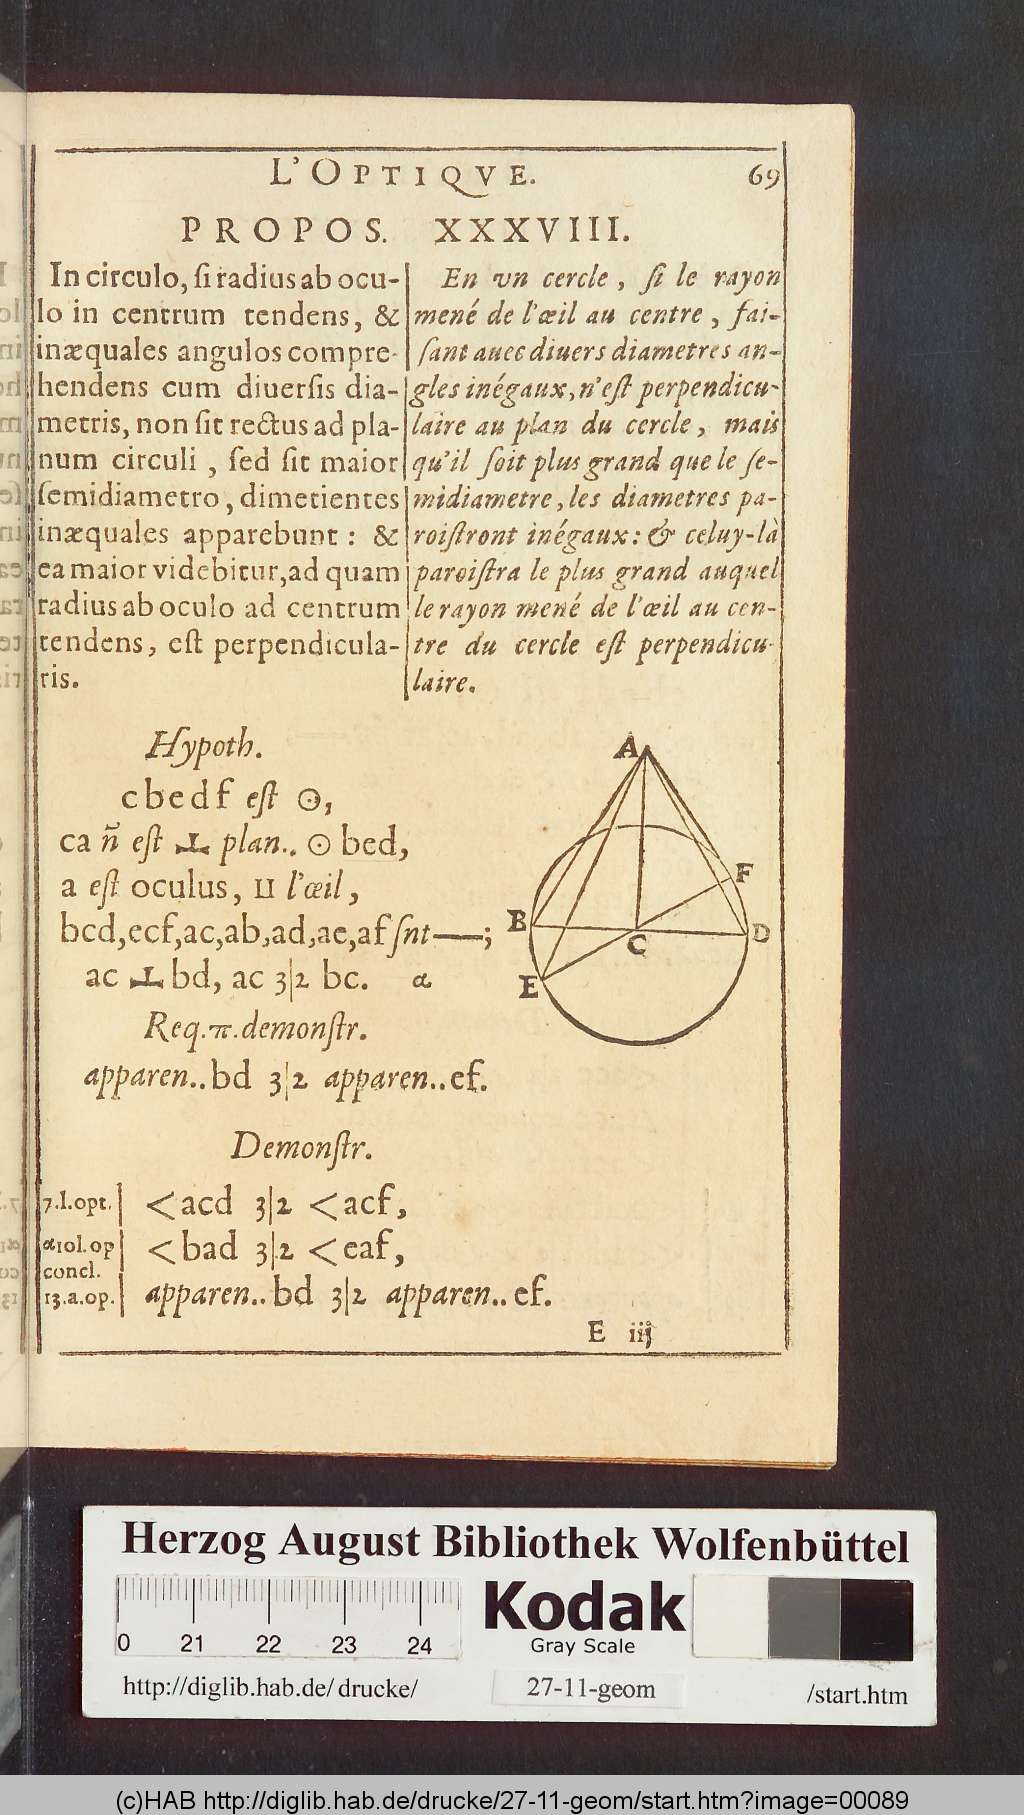 L'OPTIQVE. 69
PROPOS. XXXVIII.
In circulo, ſi radius ab ocu-
lo in centrum tendens, &
inæquales angulos compre-
hendens cum diuerſis dia-
metris, non ſit rectus ad pla-
num circuli, ſed ſit maior
ſemidiametro, dimetientes
inæquales apparebunt: &
ea maior videbitur, ad quam
radius ab oculo ad centrum
tendens, eſt perpendicula-
ris.
En vn cercle, ſi le rayon
mené de l'œil au centre, fai-
ſant auec diuers diametres an-
gles inégaux, n'eſt perpendicu-
laire au plan du cercle, mais
qu'il ſoit plus grand que le ſe-
midiametre, les diametres pa-
roiſtront inégaux: & celuy-là
paroiſtra le plus grand auquel
le rayon mené de l'œil au cen-
tre du cercle eſt perpendicu-
laire.
Hypoth.
cbedf eſt ⊙,
ca ñ eſt ⊥ plan.. ⊙ bed,
a eſt oculus, II l'œil,
bcd, ecf, ac, ab, ad, ae, af ſnt —;
ac ⊥ bd, ac 3|2 bc. α
Req. π. demonſtr.
apparen.. bd 3|2 apparen.. ef.
Demonſtr.
7.1.opt. | < acd 3|2 < acf,
α10l.op | < bad 3|2 < eaf,
concl.
13.a.op. | apparen.. bd 3|2 apparen.. ef.
E iij
A
F
B
D
C
E
Herzog August Bibliothek Wolfenbüttel
Kodak
Gray Scale
0 21 22 23 24
http://diglib.hab.de/drucke/ 27-11-geom /start.htm
(c)HAB http://diglib.hab.de/drucke/27-11-geom/start.htm?image=00089